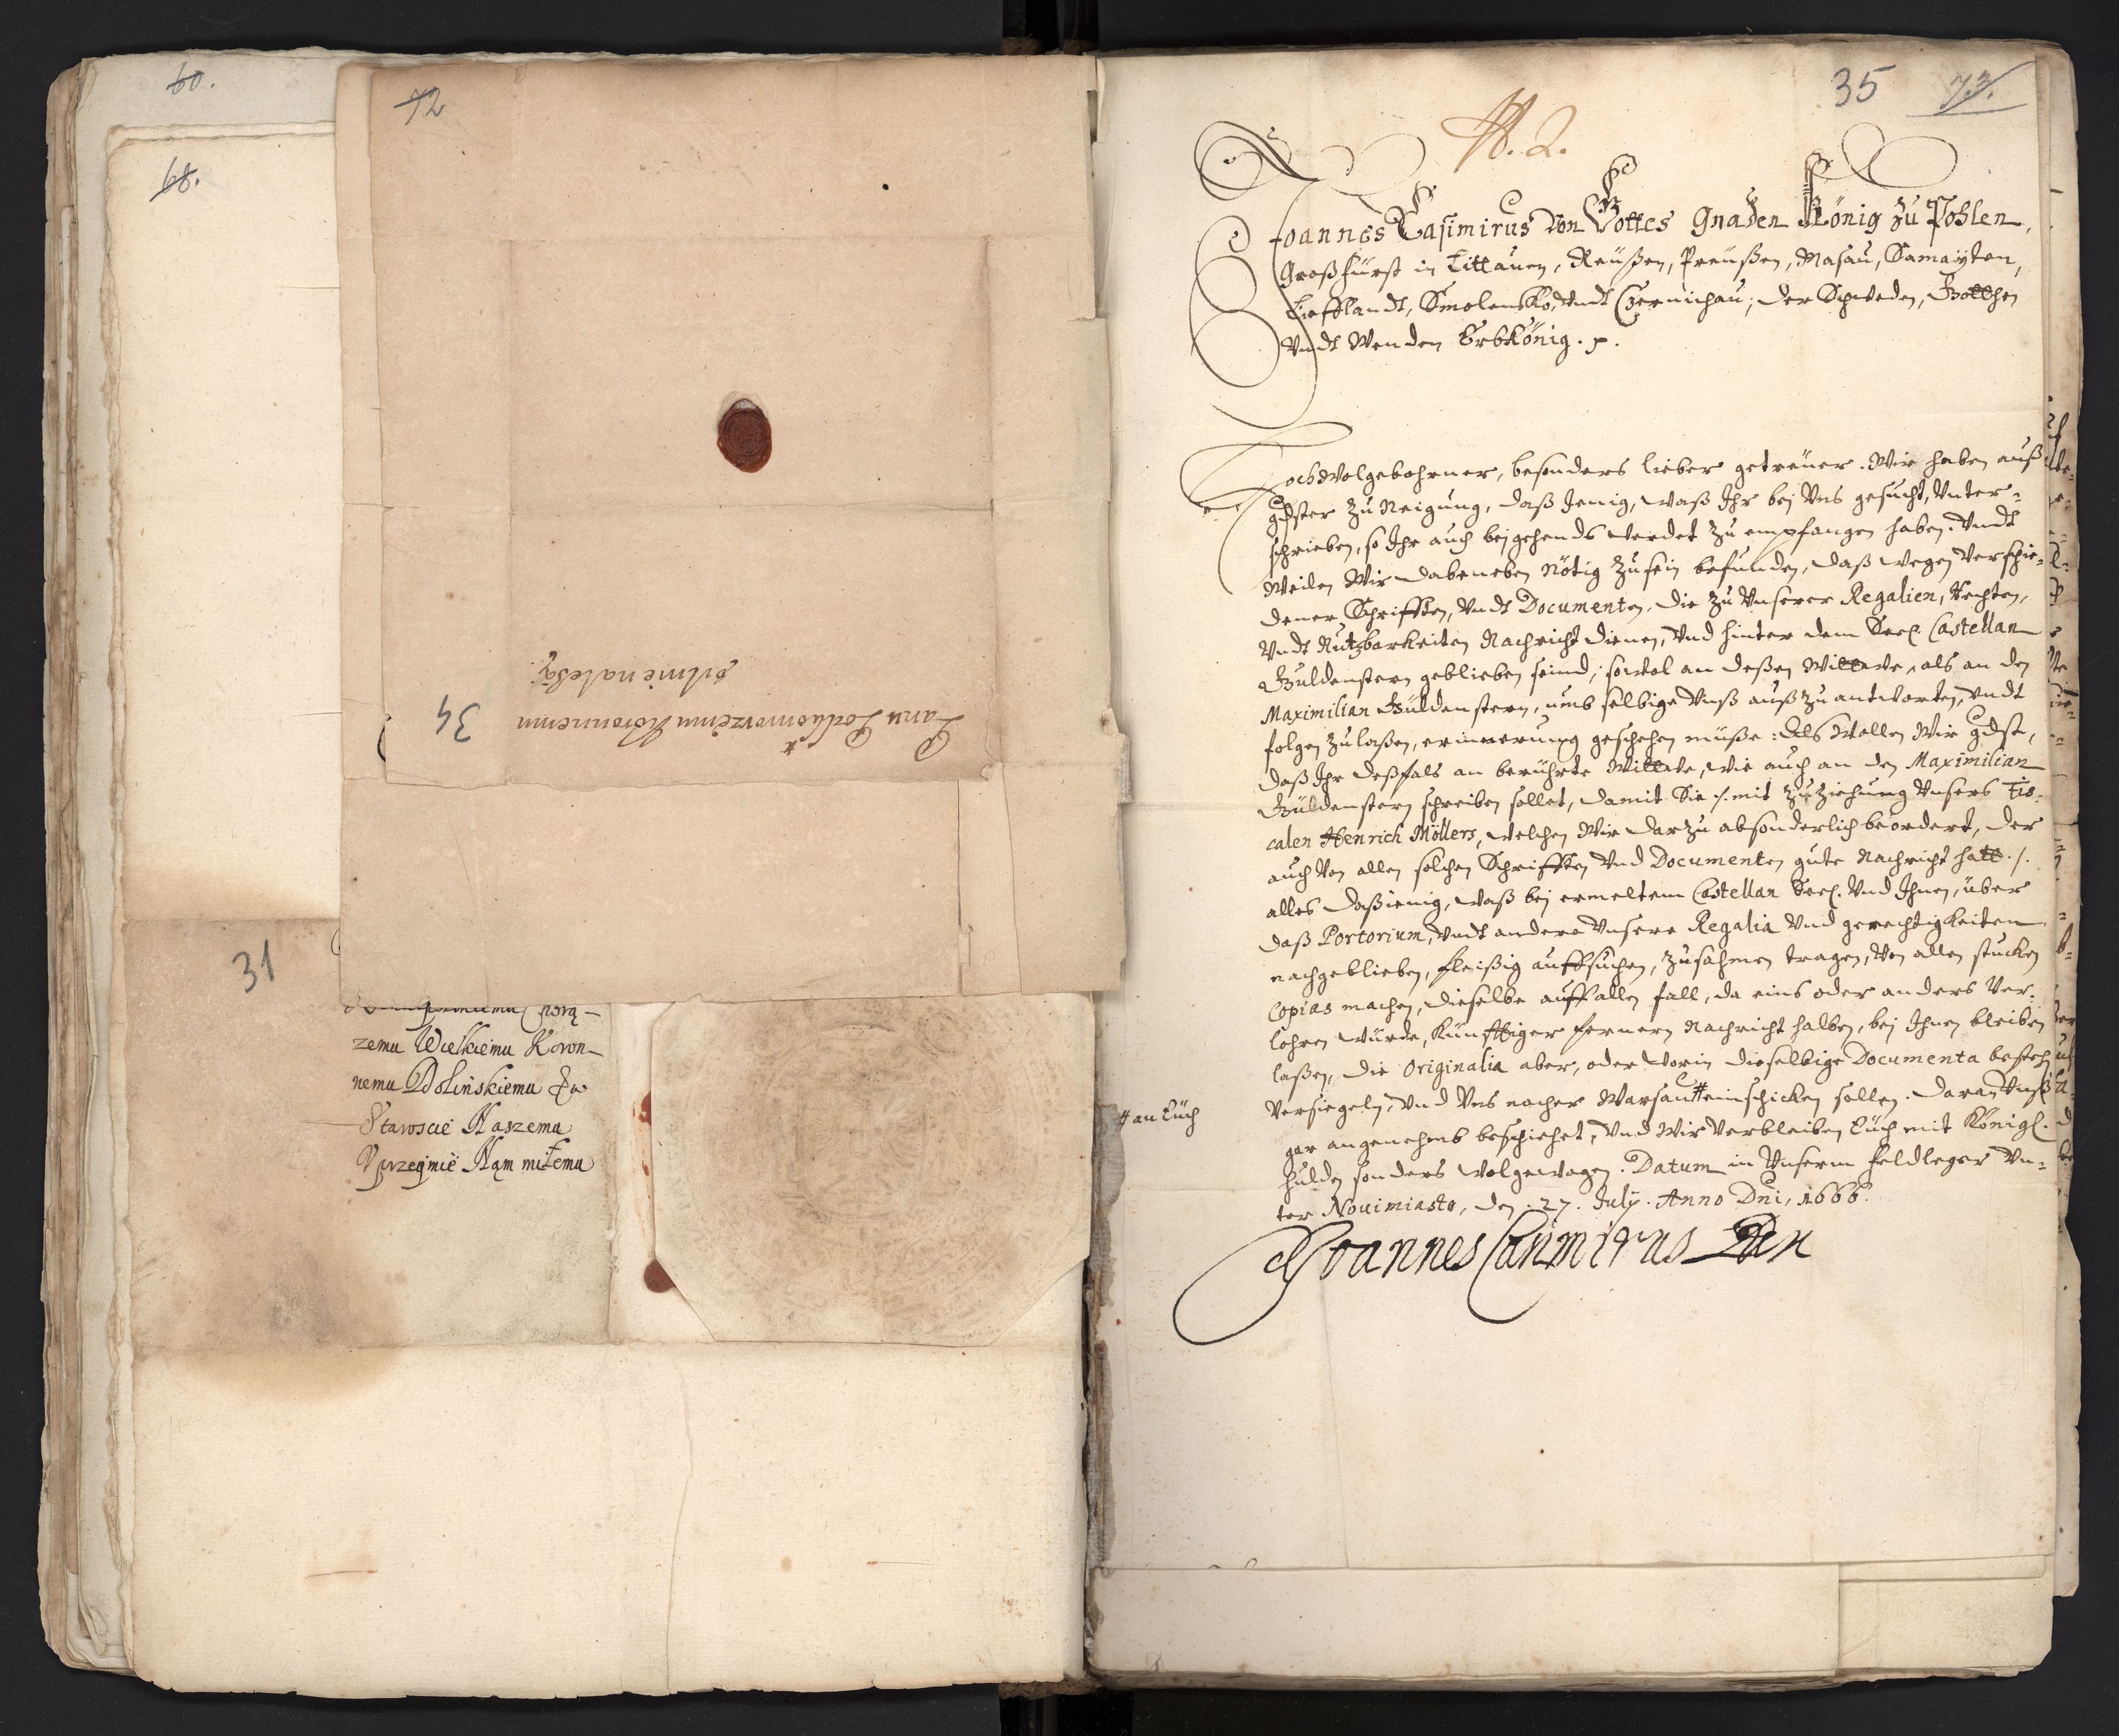 60.
68.
72
Panu Podkomorzemu Koronnemu
pilnie należy.
34
31
zemu Wielkiemu Koron-
nemu Dolińskiemu &c
Staroscie Naszemu
Vprzeymie Nam miłemu
35 73.
N. 2.
Joannes Casimirus Von Gottes Gnaden König zu Pohlen,
Großfürst in Littauen, Reüßen, Preüßen, Masau, Samaÿten,
Liefflandt, Smolensko, Vndt Czernichau, der Schweden, Gotthen
Vndt Wenden ErbKönig. p.
HochWolgebohrner, besonders lieber getreüer. Wir haben auß
gdster zuNeigung, daß Jenig, waß Ihr bej Vns gesucht, Vnter-
schrieben, so Ihr auch beigehends werdet zu empfangen haben. Vndt
Weilen Wir dabeneben Nötig zu sein befunden, daß wegen Verschie-
dener Schrifften, Vndt Documenten, die zu Vnserer Regalien, Rechten,
Vndt Nutzbarkeiten Nachricht dienen, Vnd hinter dem Seel. Castellan
Güldenstern geblieben seind, sowol an deßen Wittwe, als an den
Maximilian Güldenstern, umb selbige Vnß auß zu antworten, Vndt
folgen zu laßen, erinnerung geschehen müße: Als Wollen Wir gdst,
daß Ihr deßfals an berührte Wittwe, wie auch an den Maximilian
Güldenstern schreiben sollet, damit Sie /: mit Zuziehung Vnsers Fis-
calen Henrich Möllers, welchen Wir darzu absonderlich beordert, der
auch Von allen solchen Schrifften Vnd Documenten gute Nachricht hatt :/
alles daßienig, waß bej ermeltem Castellan Seel. Vnd Ihnen, über
daß Portorium, Vndt andere Vnsere Regalia Vnd gerechtigkeiten
nachgeblieben, fleißig auffsuchen, zusahmen tragen, Von allen stucken
Copias machen, dieselbe auff allen fall, da eins oder anders Ver-
lohren würde, Künfftiger fernern Nachricht halben, bej Ihnen bleiben
laßen, die Originalia aber, oder worin dieselbige Documenta bestehen
Versiegeln, Vnd Vns nacher Warsau # einschicken sollen. Daran Vnß
# an Eüch
gar angenehmb beschiehet, Vnd Wir Verbleiben Eüch mit Königl.
hulden sonders wolgewogen. Datum in Vnserm feldleger Vn-
ter Nouimiasto, den 27. July. Anno Dni, 1666.
Joannes Casimirus Rex